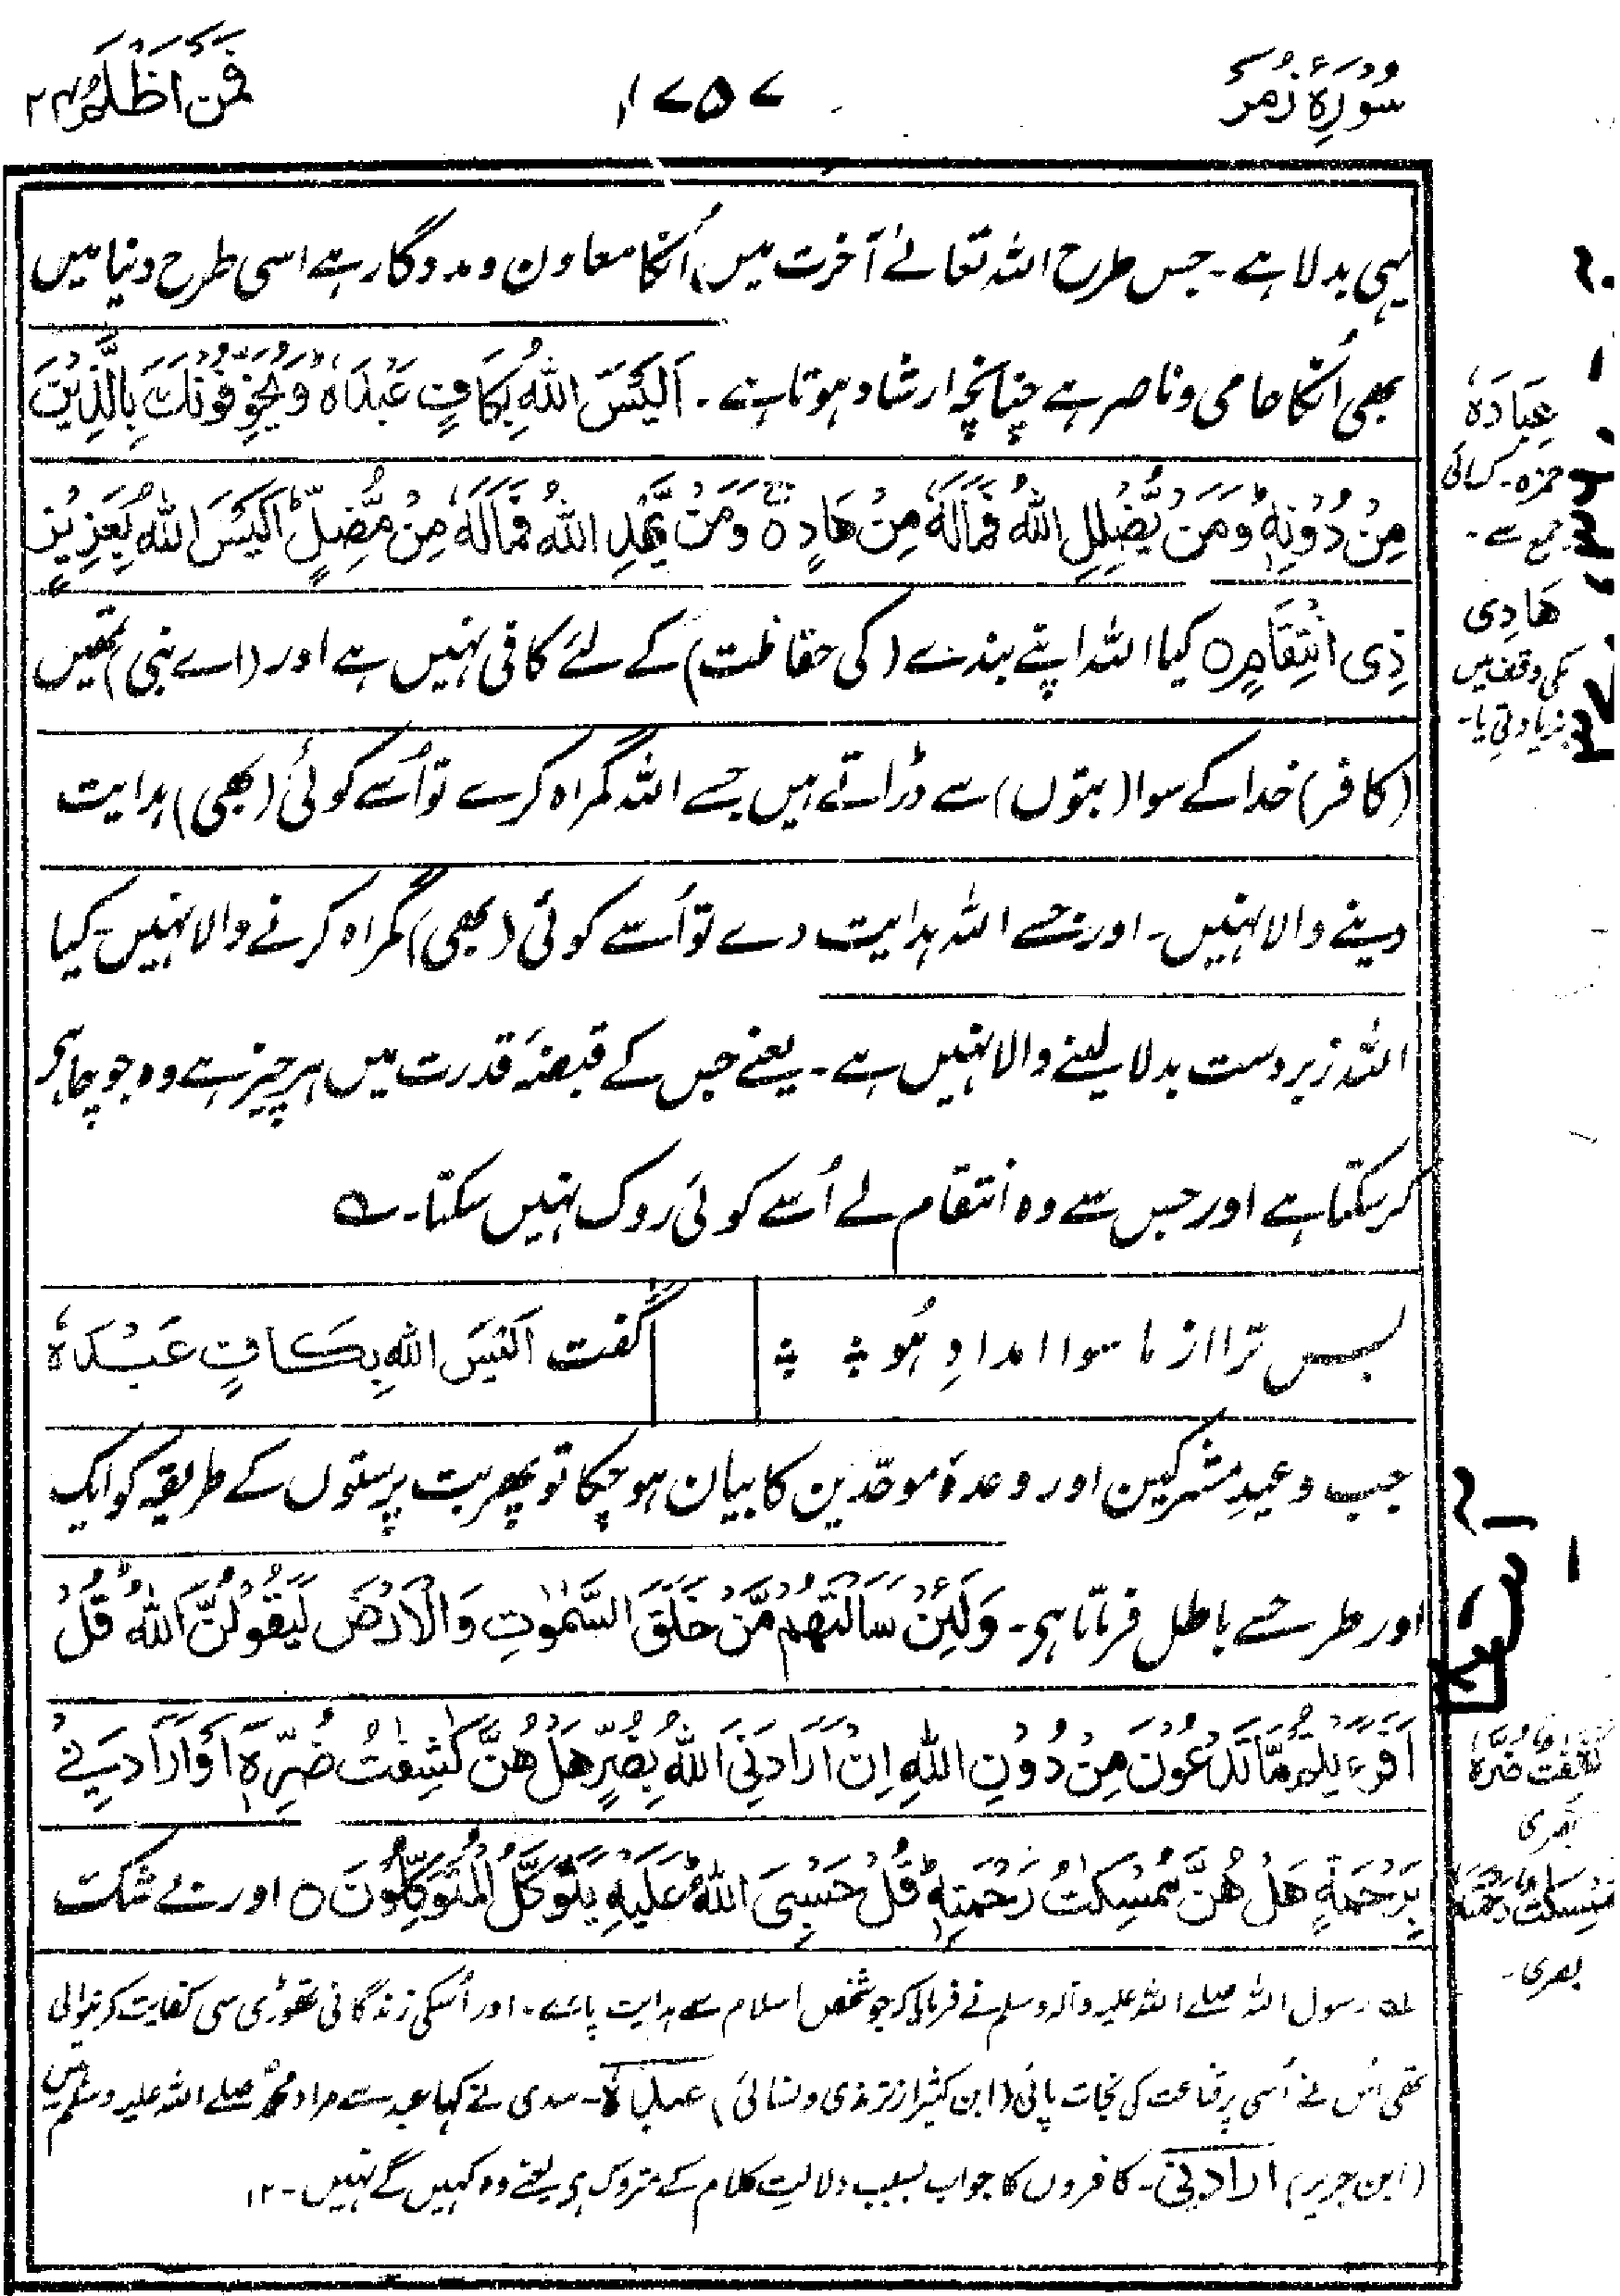 سُورَۂ زُمَر
۱۷۵۷
فَمَنْ اَظْلَمُ ۲۴
یہی بدلا ہے۔ جس طرح اللہ تعالےٰ آخرت میں اُنکا معاون و مددگار ہے اسی طرح دنیا میں
بھی اُنکا حامی و ناصر ہے چنانچہ ارشاد ہوتا ہے۔ اَلَیْسَ اللّٰهُ بِکَافٍ عَبْدَهٗ ؕ وَ یُخَوِّفُوْنَكَ بِالَّذِیْنَ
مِنْ دُوْنِهٖ ؕ وَمَنْ یُّضْلِلِ اللّٰهُ فَمَالَهٗ مِنْ هَادٍ ○ وَمَنْ یَّهْدِ اللّٰهُ فَمَالَهٗ مِنْ مُّضِلٍّ ؕ اَلَیْسَ اللّٰهُ بِعَزِیْزٍ
ذِی انْتِقَامٍ ○ کیا اللہ اپنے بندے (کی حفاظت) کے لئے کافی نہیں ہے اور (اے نبی) تمھیں
(کافر) خدا کے سوا (بتوں) سے ڈراتے ہیں جسے اللہ گمراہ کرے تو اُسے کوئی (بھی) ہدایت
دینے والا نہیں۔ اور جسے اللہ ہدایت دے تو اُسے کوئی (بھی) گمراہ کرنے والا نہیں۔ کیا
اللہ زبردست بدلا لینے والا نہیں ہے۔ یعنے جس کے قبضۂ قدرت میں ہر چیز ہے وہ جو چاہے
کر سکتا ہے اور جس سے وہ انتقام لے اُسے کوئی روک نہیں سکتا۔ ؎
بس ترا از ما سوا امدادِ ہُو ؞ ؞ گفت اَلَیْسَ اللّٰهُ بِکَافٍ عَبْدَهٗ
جب وعیدِ مشرکین اور وعدۂ موحّدین کا بیان ہو چکا تو پھر بت پرستوں کے طریقہ کو ایک
اور طرح سے باطل فرماتا ہی۔ وَلَئِنْ سَاَلْتَهُمْ مَّنْ خَلَقَ السَّمٰوٰتِ وَالْاَرْضَ لَیَقُوْلُنَّ اللّٰهُ ؕ قُلْ
اَفَرَءَیْتُمْ مَّا تَدْعُوْنَ مِنْ دُوْنِ اللّٰهِ اِنْ اَرَادَنِیَ اللّٰهُ بِضُرٍّ هَلْ هُنَّ کٰشِفٰتُ ضُرِّهٖۤ اَوْ اَرَادَنِیْ
بِرَحْمَةٍ هَلْ هُنَّ مُمْسِکٰتُ رَحْمَتِهٖ ؕ قُلْ حَسْبِیَ اللّٰهُ ؕ عَلَیْهِ یَتَوَکَّلُ الْمُتَوَکِّلُوْنَ ○ اور بے شک
؎ رسول اللہ صلے اللہ علیہ وآلہ وسلم نے فرمایا کہ جو شخص اسلام سے ہدایت پائے۔ اور اُسکی زندگانی تھوڑی سی کفایت کرنیوالی
تھی اُس نے اُسی پر قناعت کی نجات پائی (ابن کثیر از ترمذی و نسائی) عبدہٗ۔ سدی نے کہا عبد سے مراد محمد صلے اللہ علیہ وسلم ہیں
(ابن جریر) ارادنی۔ کافروں کا جواب بسبب دلالتِ کلام کے متروک ہی یعنے وہ کہیں گے نہیں۔ ۱۲
عِبَادَهٗ
حمزہ۔ کسائی
جمع سے۔
هَادِی
مکی وقف میں
بزیادتی یا۔
کٰشِفٰتٌ ضُرَّهٗ
بصری
مُمْسِکٰتٌ رَحْمَتَهٗ
بصری۔